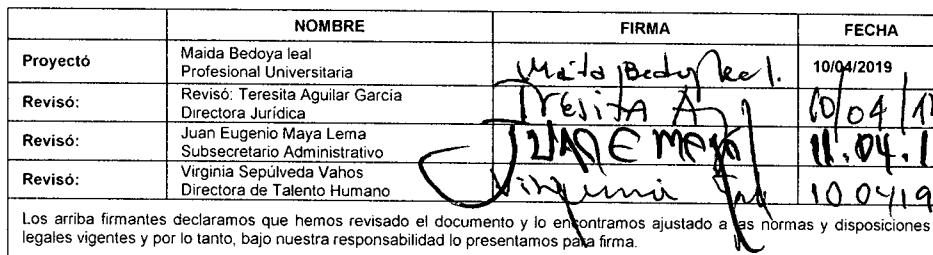 NOMBRE FIRMA FECHA
Proyectó Maida Bedoya leal
Profesional Universitaria Maida Bedoya leal. 10/04/2019
Revisó: Revisó: Teresita Aguilar García
Directora Jurídica Teresita A 10/04/1
Revisó: Juan Eugenio Maya Lema
Subsecretario Administrativo JUAN E MAYA 11.04.1
Revisó: Virginia Sepúlveda Vahos
Directora de Talento Humano Virginia 10 04 19
Los arriba firmantes declaramos que hemos revisado el documento y lo encontramos ajustado a las normas y disposiciones
legales vigentes y por lo tanto, bajo nuestra responsabilidad lo presentamos para firma.